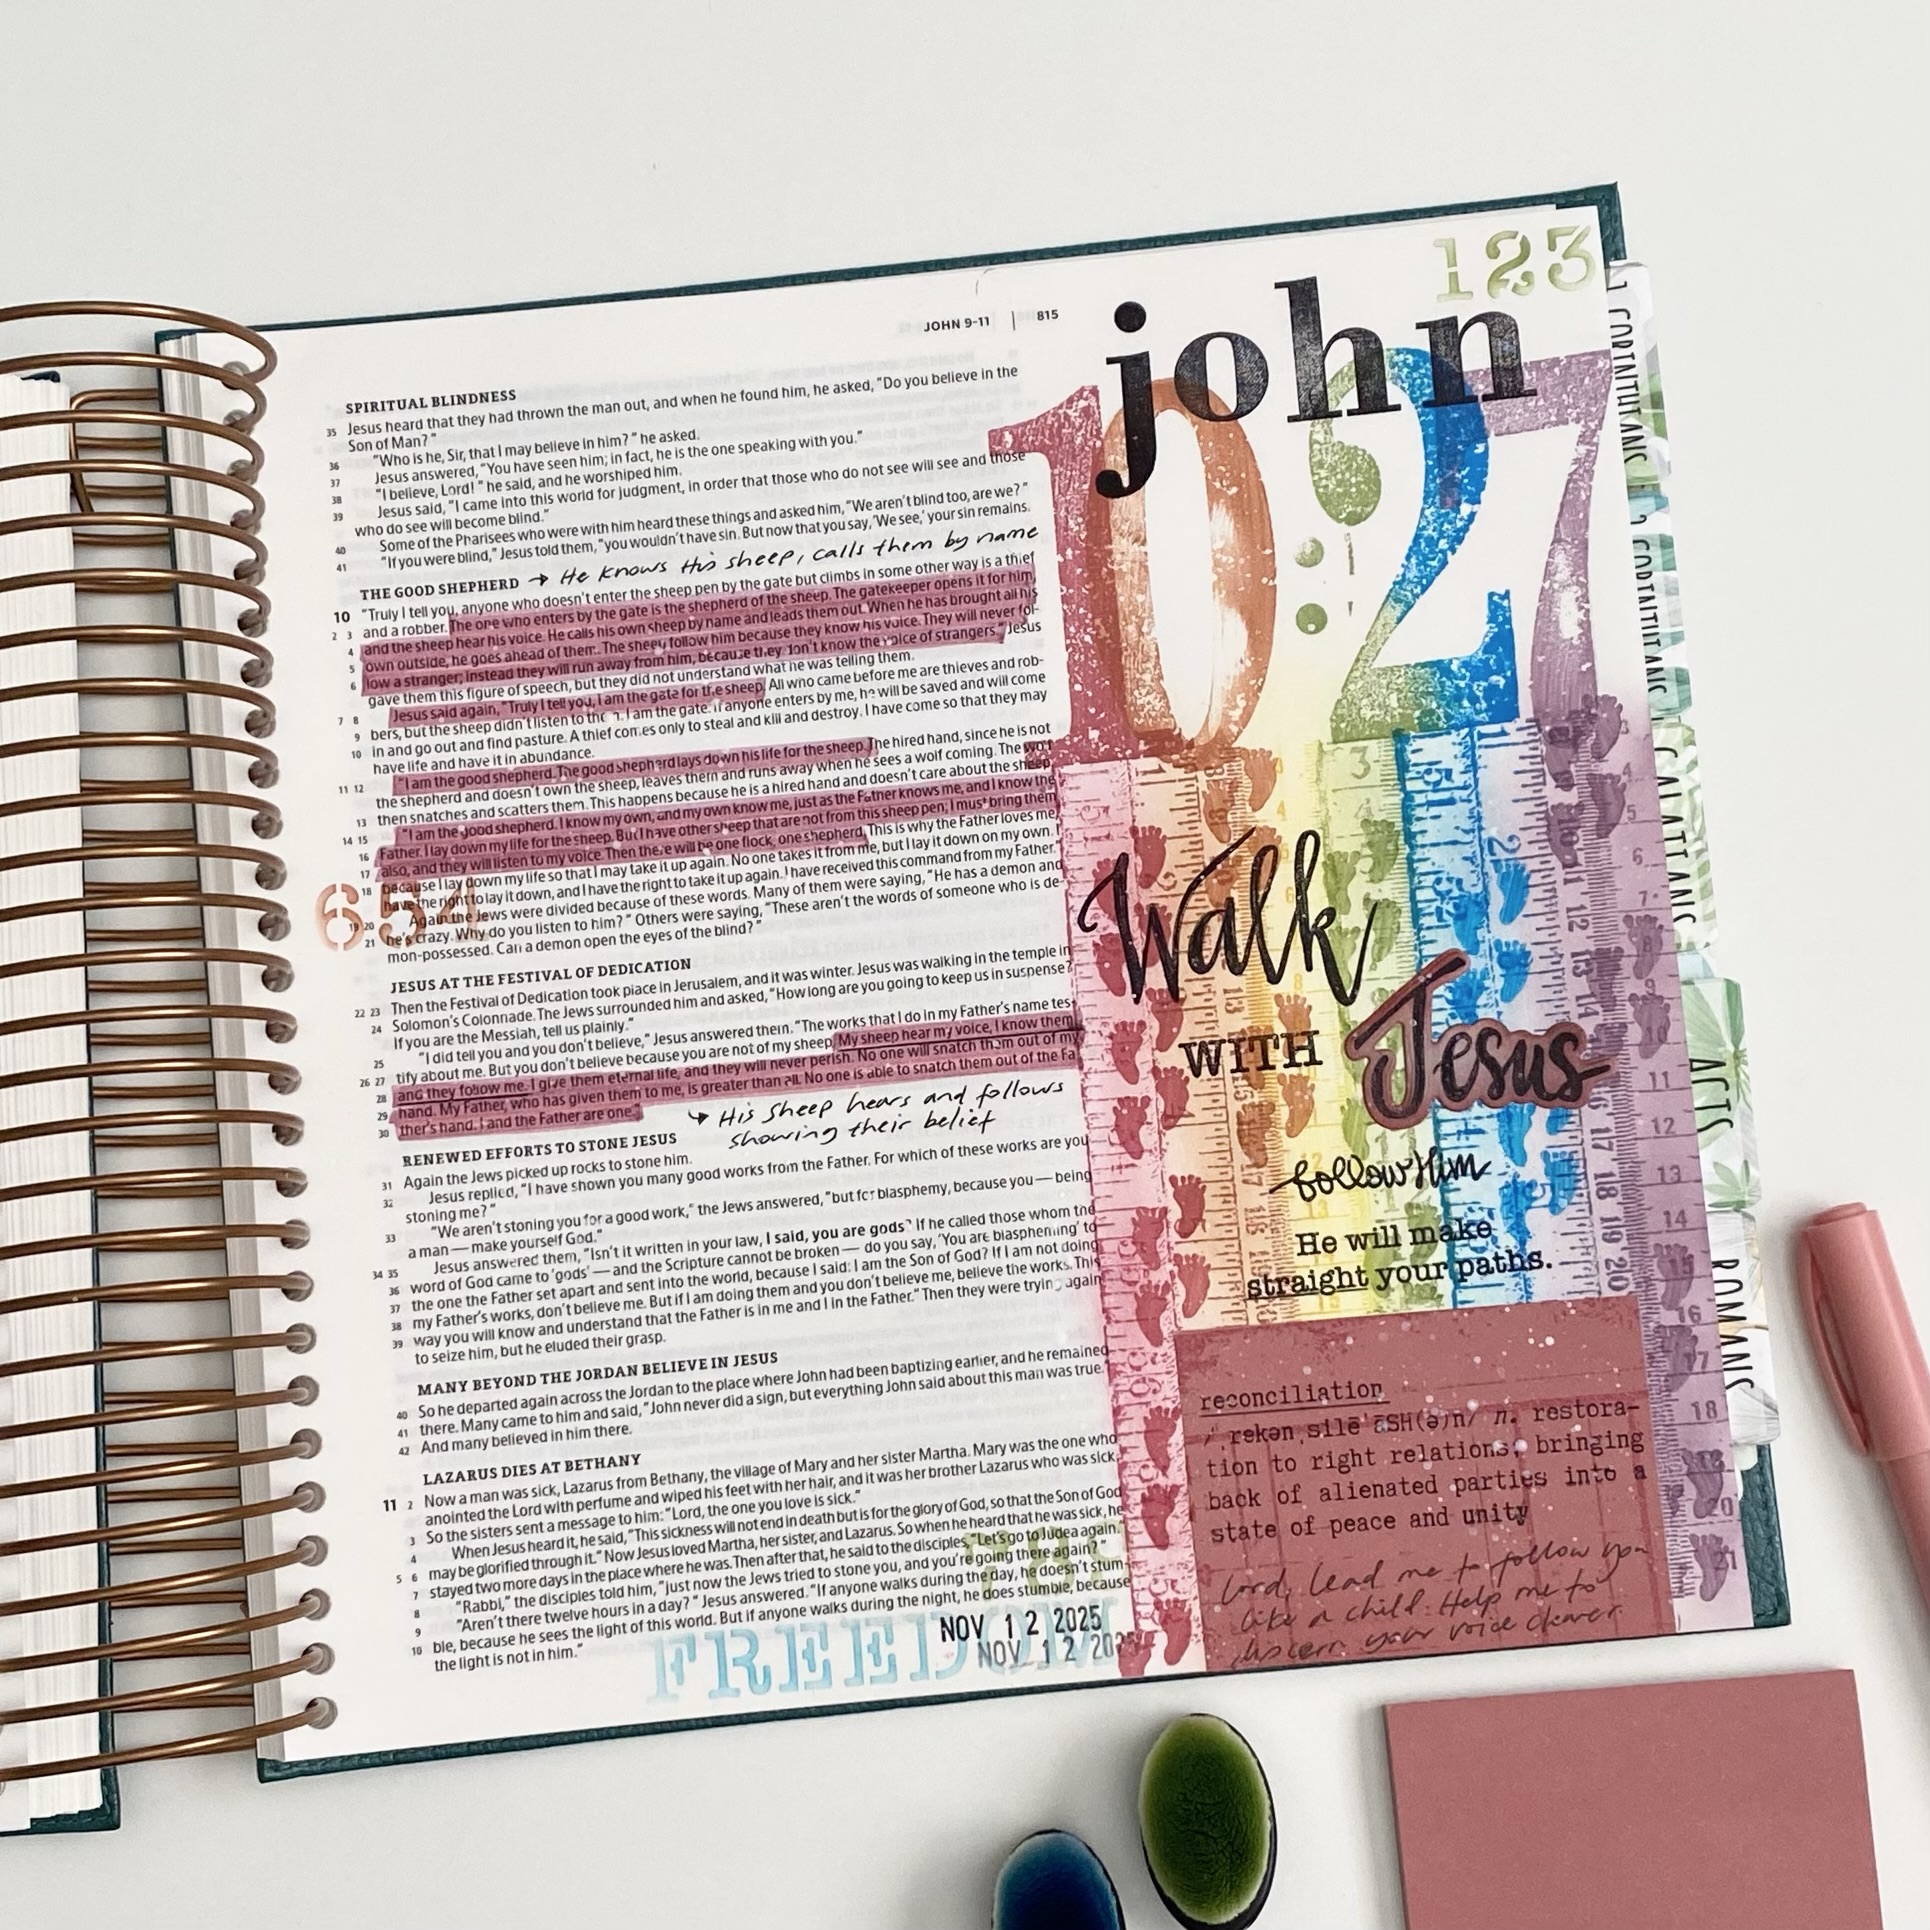 JOHN 9-11 | 815
SPIRITUAL BLINDNESS
35 Jesus heard that they had thrown the man out, and when he found him, he asked, "Do you believe in the
Son of Man?"
36 "Who is he, Sir, that I may believe in him?" he asked.
37 Jesus answered, "You have seen him; in fact, he is the one speaking with you."
38 "I believe, Lord!" he said, and he worshiped him.
39 Jesus said, "I came into this world for judgment, in order that those who do not see will see and those
who do see will become blind."
40 Some of the Pharisees who were with him heard these things and asked him, "We aren't blind too, are we?"
41 "If you were blind," Jesus told them, "you wouldn't have sin. But now that you say, 'We see,' your sin remains.
THE GOOD SHEPHERD → He knows His sheep, calls them by name
10 "Truly I tell you, anyone who doesn't enter the sheep pen by the gate but climbs in some other way is a thief
2 3 and a robber. The one who enters by the gate is the shepherd of the sheep. The gatekeeper opens it for him,
4 and the sheep hear his voice. He calls his own sheep by name and leads them out. When he has brought all his
5 own outside, he goes ahead of them. The sheep follow him because they know his voice. They will never fol-
6 low a stranger; instead they will run away from him, because they don't know the voice of strangers." Jesus
gave them this figure of speech, but they did not understand what he was telling them.
7 8 Jesus said again, "Truly I tell you, I am the gate for the sheep. All who came before me are thieves and rob-
9 bers, but the sheep didn't listen to them. I am the gate. If anyone enters by me, he will be saved and will come
10 in and go out and find pasture. A thief comes only to steal and kill and destroy. I have come so that they may
have life and have it in abundance.
11 12 "I am the good shepherd. The good shepherd lays down his life for the sheep. The hired hand, since he is not
the shepherd and doesn't own the sheep, leaves them and runs away when he sees a wolf coming. The wolf
13 then snatches and scatters them. This happens because he is a hired hand and doesn't care about the sheep.
14 15 "I am the good shepherd. I know my own, and my own know me, just as the Father knows me, and I know the
16 Father. I lay down my life for the sheep. But I have other sheep that are not from this sheep pen; I must bring them
17 also, and they will listen to my voice. Then there will be one flock, one shepherd. This is why the Father loves me,
18 because I lay down my life so that I may take it up again. No one takes it from me, but I lay it down on my own. I
have the right to lay it down, and I have the right to take it up again. I have received this command from my Father."
19 20 Again the Jews were divided because of these words. Many of them were saying, "He has a demon and
21 he's crazy. Why do you listen to him?" Others were saying, "These aren't the words of someone who is de-
mon-possessed. Can a demon open the eyes of the blind?"
654
JESUS AT THE FESTIVAL OF DEDICATION
22 23 Then the Festival of Dedication took place in Jerusalem, and it was winter. Jesus was walking in the temple in
24 Solomon's Colonnade. The Jews surrounded him and asked, "How long are you going to keep us in suspense?
If you are the Messiah, tell us plainly."
25 "I did tell you and you don't believe," Jesus answered them. "The works that I do in my Father's name tes-
26 27 tify about me. But you don't believe because you are not of my sheep. My sheep hear my voice, I know them,
28 and they follow me. I give them eternal life, and they will never perish. No one will snatch them out of my
29 hand. My Father, who has given them to me, is greater than all. No one is able to snatch them out of the Fa
30 ther's hand. I and the Father are one."
→ His sheep hears and follows
showing their belief
RENEWED EFFORTS TO STONE JESUS
31 Again the Jews picked up rocks to stone him.
32 Jesus replied, "I have shown you many good works from the Father. For which of these works are you
stoning me?"
33 "We aren't stoning you for a good work," the Jews answered, "but for blasphemy, because you — being
a man — make yourself God."
34 35 Jesus answered them, "Isn't it written in your law, I said, you are gods? If he called those whom the
36 word of God came to 'gods' — and the Scripture cannot be broken — do you say, 'You are blaspheming' to
37 the one the Father set apart and sent into the world, because I said: I am the Son of God? If I am not doing
38 my Father's works, don't believe me. But if I am doing them and you don't believe me, believe the works. This
39 way you will know and understand that the Father is in me and I in the Father." Then they were trying again
to seize him, but he eluded their grasp.
MANY BEYOND THE JORDAN BELIEVE IN JESUS
40 So he departed again across the Jordan to the place where John had been baptizing earlier, and he remained
41 there. Many came to him and said, "John never did a sign, but everything John said about this man was true."
42 And many believed in him there.
LAZARUS DIES AT BETHANY
11 2 Now a man was sick, Lazarus from Bethany, the village of Mary and her sister Martha. Mary was the one who
anointed the Lord with perfume and wiped his feet with her hair, and it was her brother Lazarus who was sick.
3 So the sisters sent a message to him: "Lord, the one you love is sick."
4 When Jesus heard it, he said, "This sickness will not end in death but is for the glory of God, so that the Son of God
5 6 may be glorified through it." Now Jesus loved Martha, her sister, and Lazarus. So when he heard that he was sick, he
7 stayed two more days in the place where he was. Then after that, he said to the disciples, "Let's go to Judea again."
8 "Rabbi," the disciples told him, "just now the Jews tried to stone you, and you're going there again?"
9 "Aren't there twelve hours in a day?" Jesus answered. "If anyone walks during the day, he doesn't stum-
10 ble, because he sees the light of this world. But if anyone walks during the night, he does stumble, because
the light is not in him."
FREEDOM
NOV 12 2025
NOV 12 202
123
john
10:27
Walk
WITH Jesus
follow Him
He will make
straight your paths.
reconciliation
/ˌrekənˌsilēˈāSH(ə)n/ n. restora-
tion to right relations; bringing
back of alienated parties into a
state of peace and unity
Lord, lead me to follow you
like a child. Help me to
discern your voice clearer.
1 CORINTHIANS
2 CORINTHIANS
GALATIANS
ACTS
ROMANS